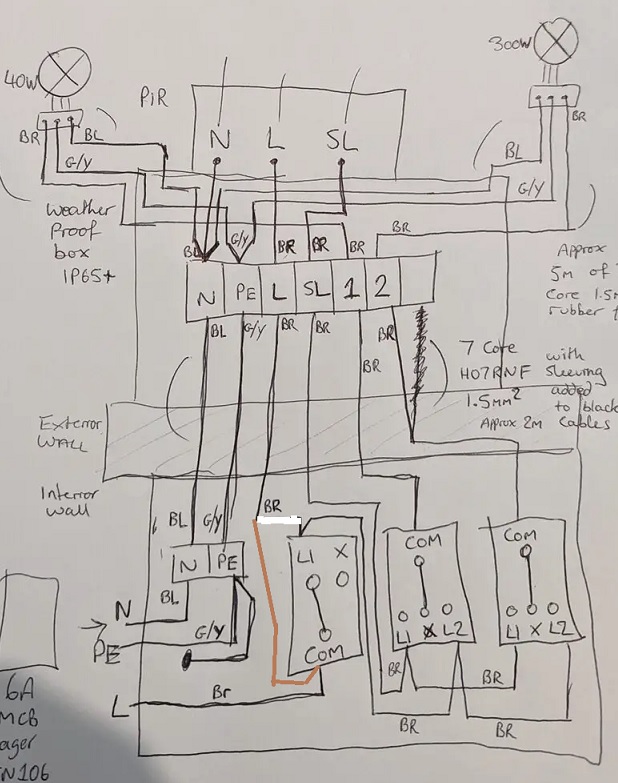 40W
300W
PiR
BR
BL
G/Y
N
L
SL
BR
BL
G/Y
Weather
Proof
box
IP65+
BL
G/Y
BR
BR
BR
BR
Approx
5m of
Core
rubber
N
PE
L
SL
1
2
BL
G/Y
BR
BR
BR
BR
7 Core
H07RNF
1.5mm²
Approx 2m
with
sleeving
added
to black
cables
Exterior
WALL
Interior
wall
BL
G/Y
BR
N
PE
L1
X
COM
COM
L1
X
L2
COM
L1
X
L2
N
BL
PE
G/Y
L
Br
BR
BR
BR
BR
6A
MCB